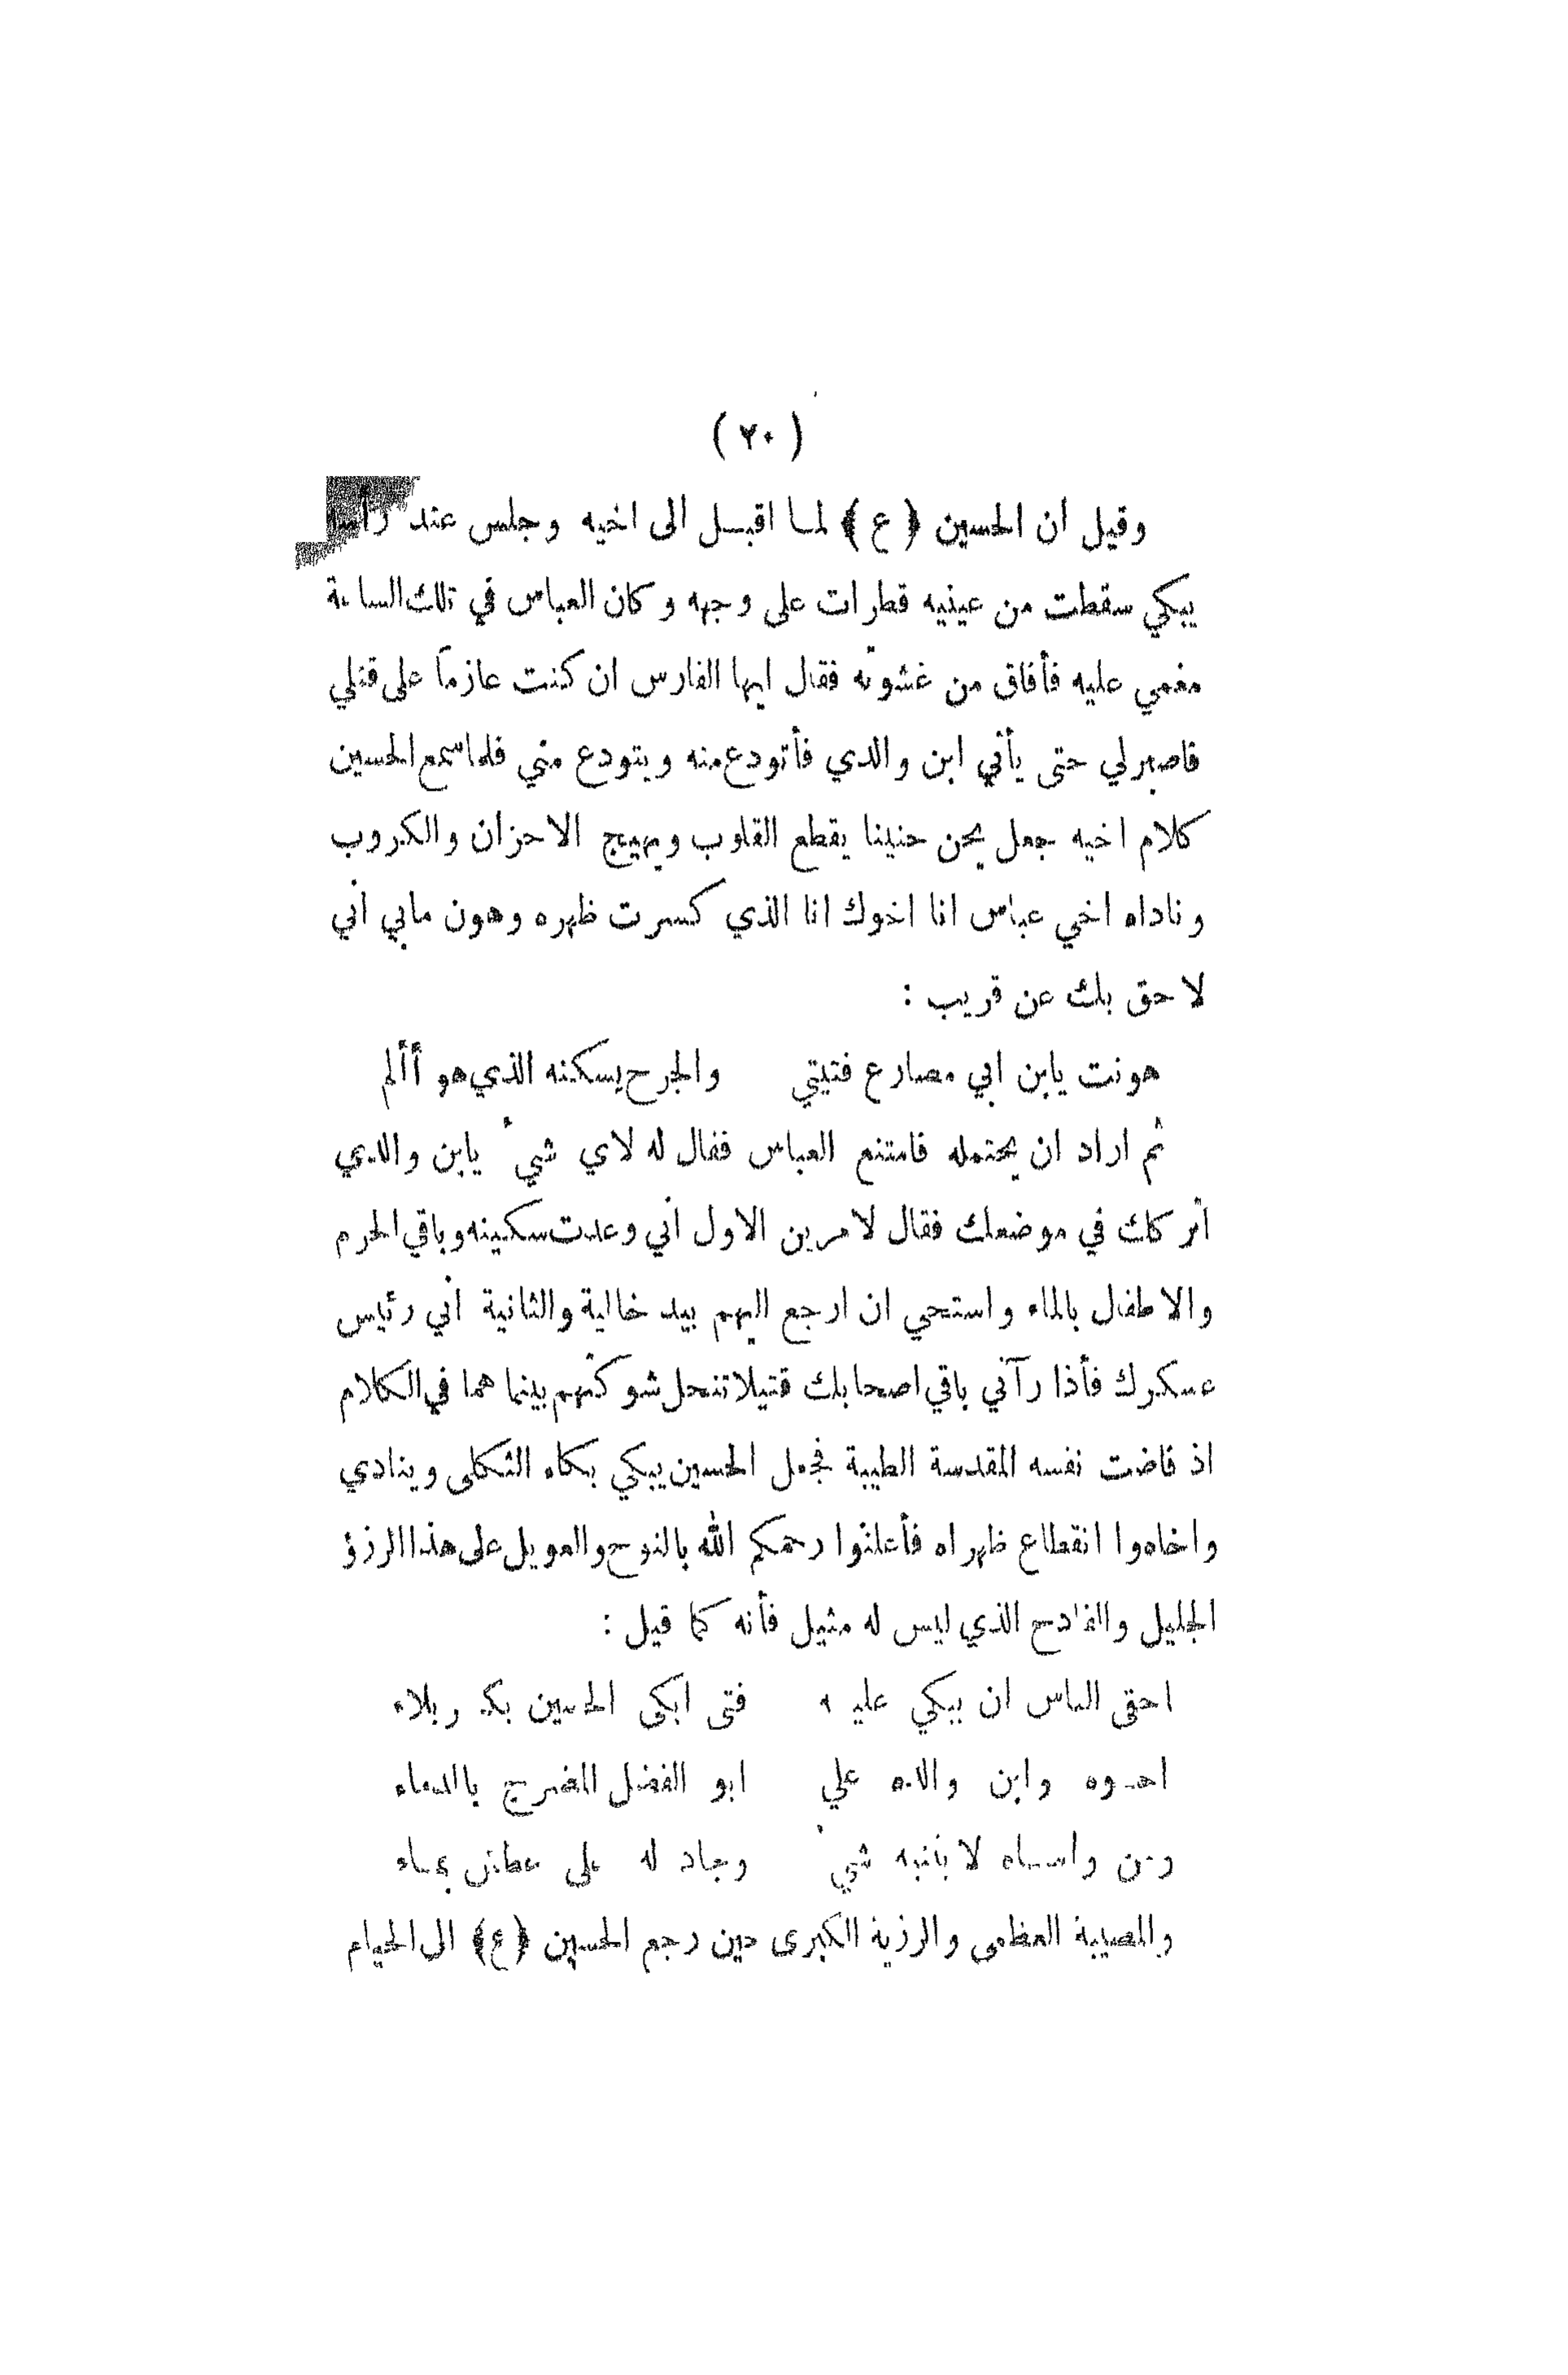 ( ٢٠ )
وقيل ان الحسين ﴿ ع ﴾ لما اقبل الى اخيه وجلس عند
يبكي سقطت من عينيه قطرات على وجهه وكان العباس في تلك الساعة
مغمي عليه فأفاق من غشوته فقال ايها الفارس ان كنت عازماً على قتلي
فاصبر لي حتى يأتي ابن والدي فأتودع منه ويتودع مني فلما سمع الحسين
كلام اخيه جعل يحن حنينا يقطع القلوب ويهيج الاحزان والكروب
وناداه اخي عباس انا اخوك انا الذي كسرت ظهره وهون مابي أني
لاحق بك عن قريب :
هونت يابن ابي مصارع فتيتي والجرح يسكنه الذي هو أألم
ثم اراد ان يحتمله فامتنع العباس فقال له لاي شيء يابن والدي
أتركك في موضعك فقال لامرين الاول أني وعدت سكينه وباقي الحرم
والاطفال بالماء واستحي ان ارجع اليهم بيد خالية والثانية أني رئيس
عسكرك فأذا رآني باقي اصحابك قتيلا تنحل شوكتهم بينما هما في الكلام
اذ فاضت نفسه المقدسة الطيبة فجعل الحسين يبكي بكاء الثكلى وينادي
واخاه وا انقطاع ظهراه فأعلنوا رحمكم الله بالنوح والعويل على هذا الرزؤ
الجليل والفادح الذي ليس له مثيل فأنه كما قيل :
احق الناس ان يبكي عليه فتى ابكى الحسين بكربلاء
اخوه وابن والده علي ابو الفضل المضرج بالدماء
ومن واساه لا يثنيه شيء وجاد له على عطش بماء
والمصيبة العظمى والرزية الكبرى حين رجع الحسين ﴿ع﴾ الى الخيام